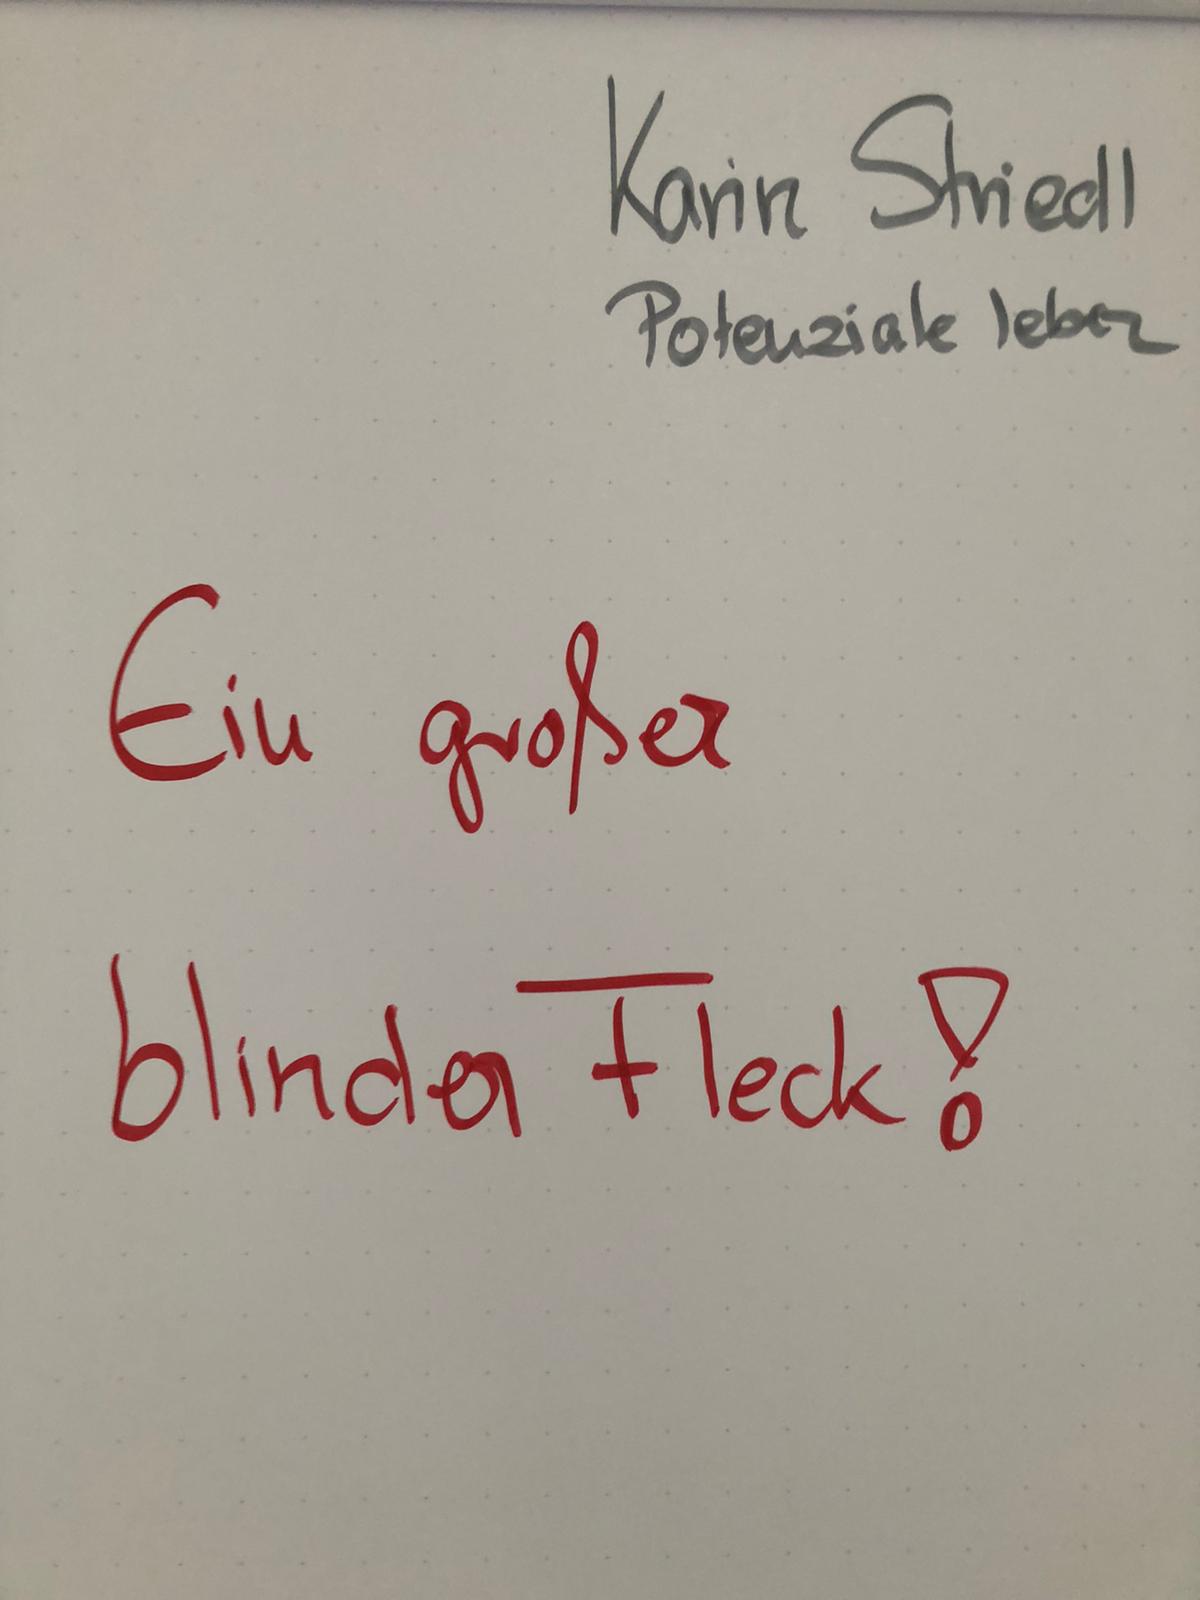 Karin Striedl
Potenziale leben
Ein großer
blinder Fleck!